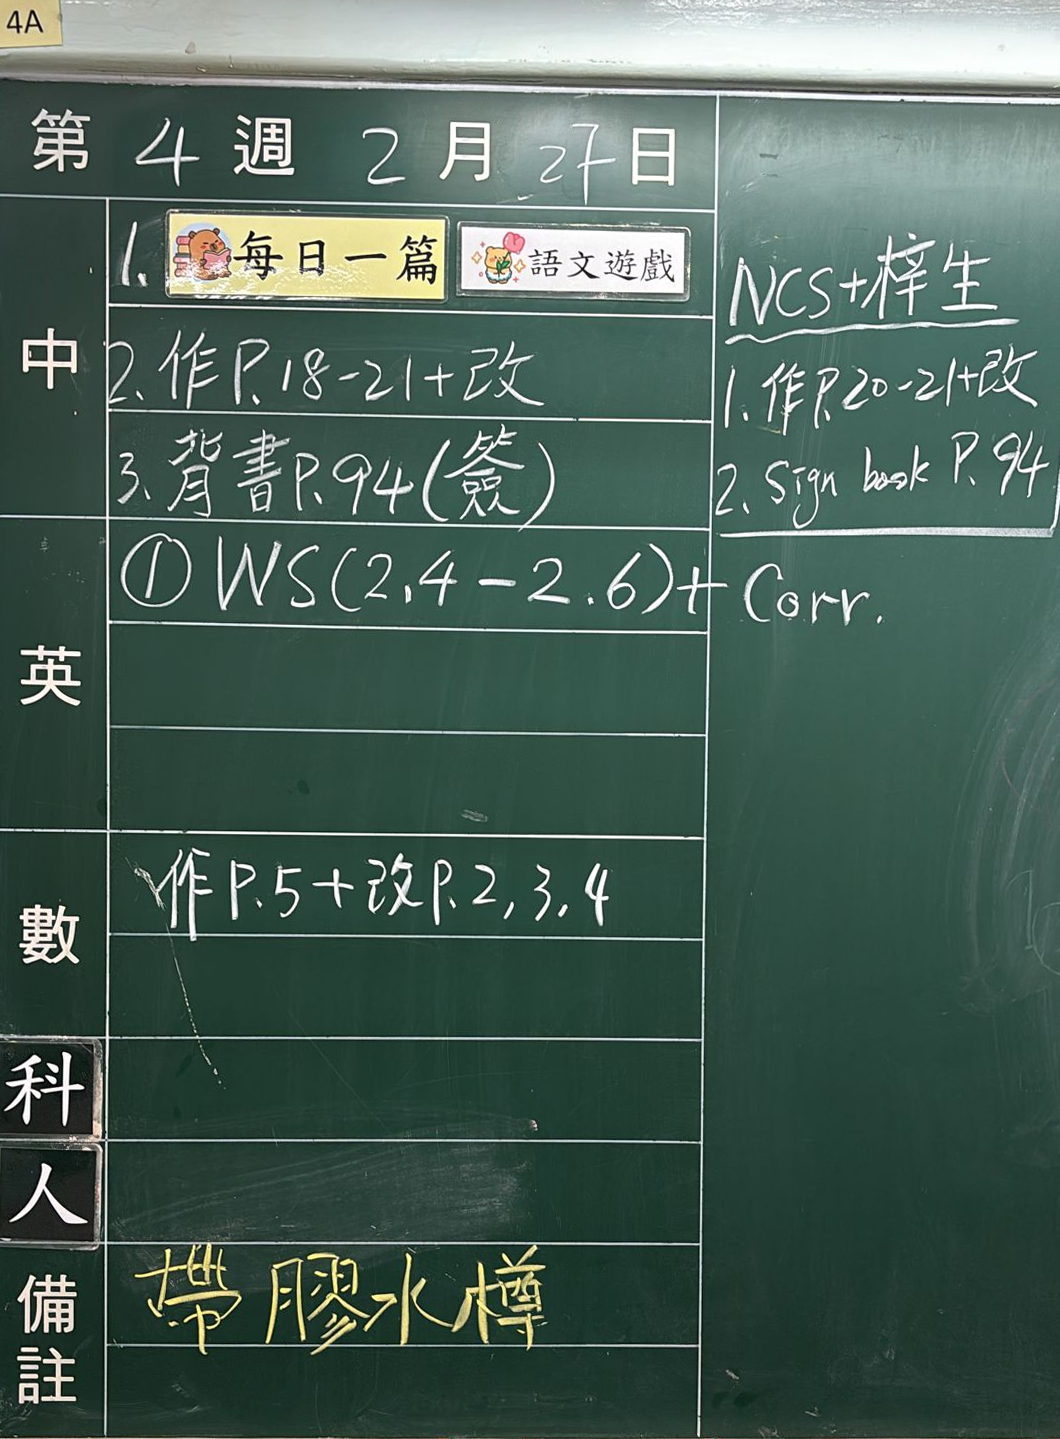 4A
第 4 週 2 月 27 日
中
1. 每日一篇 語文遊戲
2. 作P.18-21+改
3. 背書P.94(簽)
NCS+梓生
1. 作P.20-21+改
2. Sign book P.94
英
① WS(2.4-2.6)+ Corr.
數
作P.5+改P.2,3,4
科
人
備註
帶膠水樽